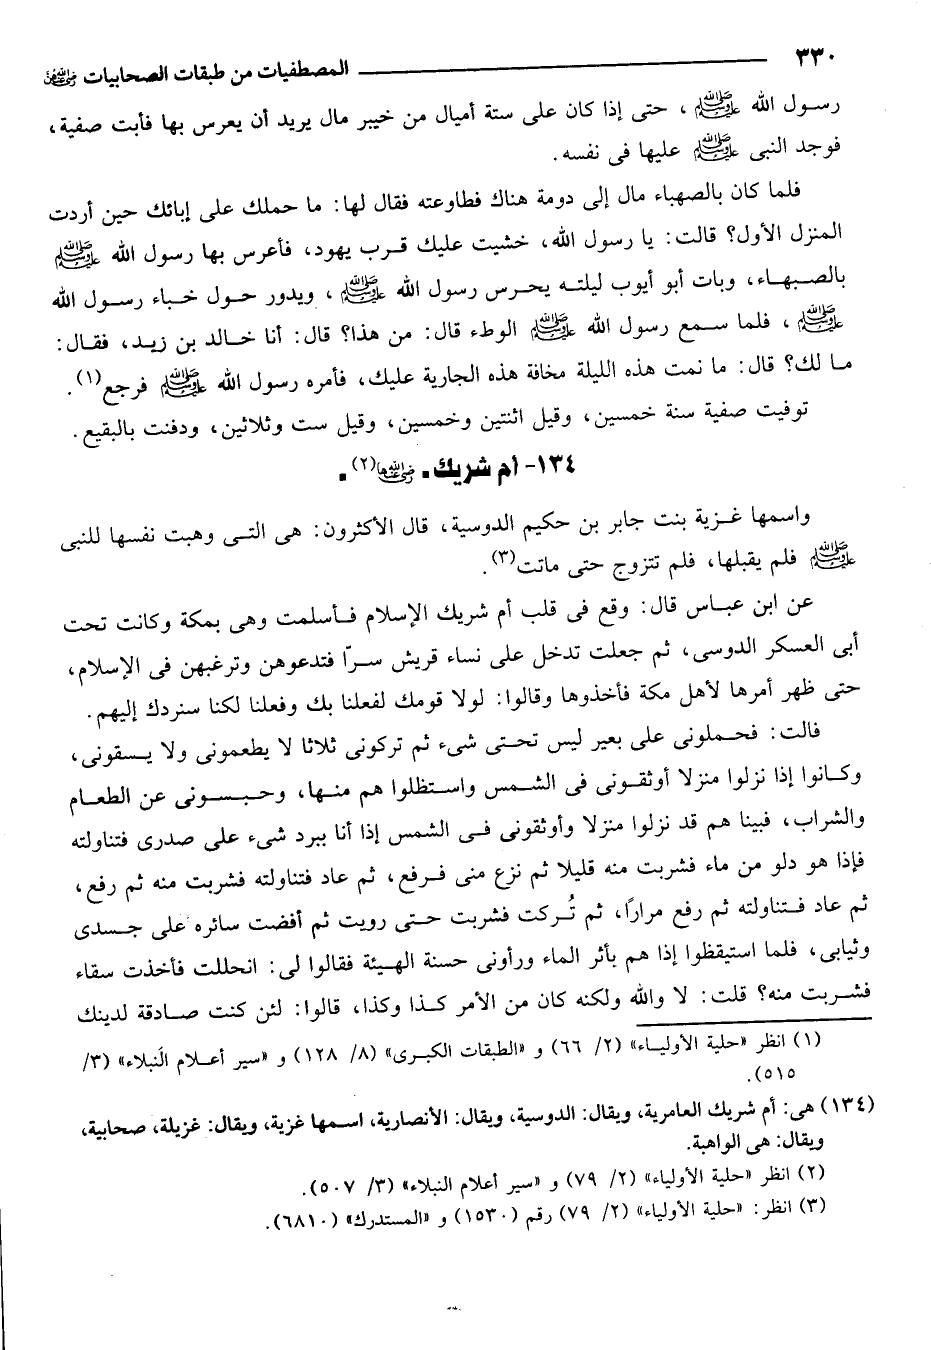 ٣٣٠ المصطفيات من طبقات الصحابيات رضي الله عنهن
رسول الله ﷺ، حتى إذا كان على ستة أميال من خيبر مال يريد أن يعرس بها فأبت صفية،
فوجد النبى ﷺ عليها فى نفسه.
فلما كان بالصهباء مال إلى دومة هناك فطاوعته فقال لها: ما حملك على إبائك حين أردت
المنزل الأول؟ قالت: يا رسول الله، خشيت عليك قرب يهود، فأعرس بها رسول الله ﷺ
بالصهباء، وبات أبو أيوب ليلته يحرس رسول الله ﷺ، ويدور حول خباء رسول الله
ﷺ، فلما سمع رسول الله ﷺ الوطء قال: من هذا؟ قال: أنا خالد بن زيد، فقال:
ما لك؟ قال: ما نمت هذه الليلة مخافة هذه الجارية عليك، فأمره رسول الله ﷺ فرجع(١).
توفيت صفية سنة خمسين، وقيل اثنتين وخمسين، وقيل ست وثلاثين، ودفنت بالبقيع.
١٣٤- أم شريك. رضي الله عنها(٢).
واسمها غزية بنت جابر بن حكيم الدوسية، قال الأكثرون: هى التى وهبت نفسها للنبى
ﷺ فلم يقبلها، فلم تتزوج حتى ماتت(٣).
عن ابن عباس قال: وقع فى قلب أم شريك الإسلام فأسلمت وهى بمكة وكانت تحت
أبى العسكر الدوسى، ثم جعلت تدخل على نساء قريش سرّا فتدعوهن وترغبهن فى الإسلام،
حتى ظهر أمرها لأهل مكة فأخذوها وقالوا: لولا قومك لفعلنا بك وفعلنا لكنا سنردك إليهم.
قالت: فحملونى على بعير ليس تحتى شىء ثم تركونى ثلاثا لا يطعمونى ولا يسقونى،
وكانوا إذا نزلوا منزلا أوثقونى فى الشمس واستظلوا هم منها، وحبسونى عن الطعام
والشراب، فبينا هم قد نزلوا منزلا وأوثقونى فى الشمس إذا أنا ببرد شىء على صدرى فتناولته
فإذا هو دلو من ماء فشربت منه قليلا ثم نزع منى فرفع، ثم عاد فتناولته فشربت منه ثم رفع،
ثم عاد فتناولته ثم رفع مرارًا، ثم تُركت فشربت حتى رويت ثم أفضت سائره على جسدى
وثيابى، فلما استيقظوا إذا هم بأثر الماء ورأونى حسنة الهيئة فقالوا لى: انحللت فأخذت سقاء
فشربت منه؟ قلت: لا والله ولكنه كان من الأمر كذا وكذا، قالوا: لئن كنت صادقة لدينك
(١) انظر «حلية الأولياء» (٢/ ٦٦) و «الطبقات الكبرى» (٨/ ١٢٨) و «سير أعلام النبلاء» (٣/
٥١٥).
(١٣٤) هى: أم شريك العامرية، ويقال: الدوسية، ويقال: الأنصارية، اسمها غزية، ويقال: غزيلة، صحابية،
ويقال: هى الواهبة.
(٢) انظر «حلية الأولياء» (٢/ ٧٩) و «سير أعلام النبلاء» (٣/ ٥٠٧).
(٣) انظر: «حلية الأولياء» (٢/ ٧٩) رقم (١٥٣٠) و «المستدرك» (٦٨١٠).